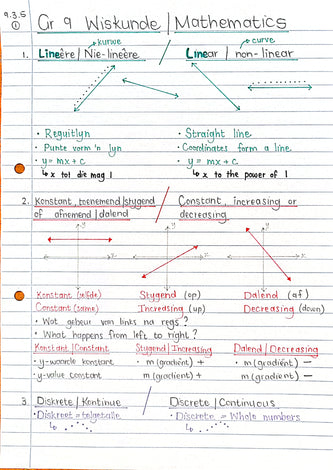 9.3.5
①
Gr 9 Wiskunde | Mathematics
kurwe
curve
1. Lineêre | Nie-lineêre / Linear | non-linear
• Reguitlyn • Straight line
• Punte vorm 'n lyn • Coordinates form a line
• y = mx + c • y = mx + c
↳ x tot die mag 1 ↳ x to the power of 1
2. Konstant, toenemend | stygend / Constant, increasing or
of afnemend | dalend decreasing
y y y
x x x
Konstant (selfde) Stygend (op) Dalend (af)
Constant (same) Increasing (up) Decreasing (down)
• Wat gebeur van links na regs?
• What happens from left to right?
Konstant | Constant Stygend | Increasing Dalend | Decreasing
• y-waarde konstant • m (gradiënt) + • m (gradiënt) −
• y-value constant m (gradient) + m (gradient) −
3. Diskrete | Kontinue / Discrete | Continuous
• Diskreet = telgetalle • Discrete = Whole numbers
↳ ↳